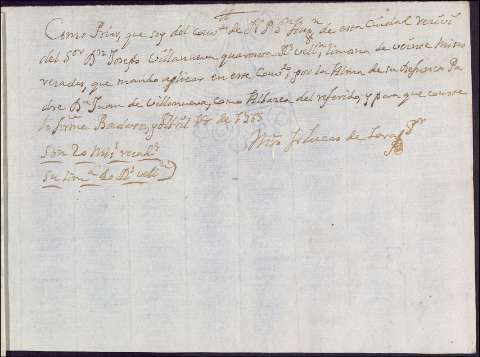 Como Prior, que soy del Conv.to de N. P. S.n Ag.n de esta Ciudad recivi
del S.or D.n Joseph Villanueva quarenta R.s vell.n limosna de veinte Misas
rezadas, que mando aplicar en este Conv.to, por la Alma de su difunto Pa
dre D.n Juan de Villanueva, como Albacea del referido, y para que conste
lo firmé Badajoz, y Abril 18 de
Mro Fr. Lucas de Lara Pr.
Son 20 Mis.s rezad.s
Su lim.na 40 R.s vell.n